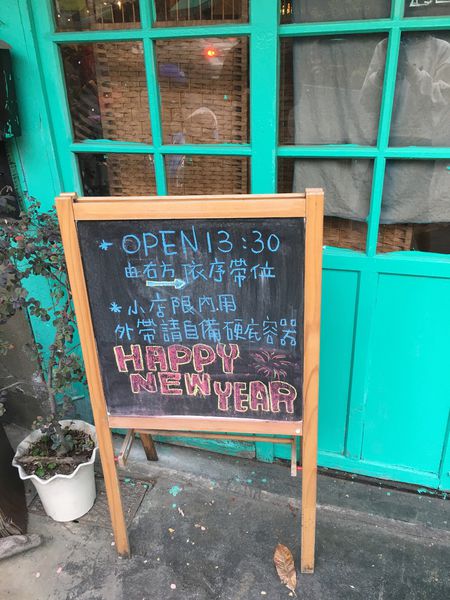 * OPEN 13:30
由右方 依序帶位
* 小店限內用
外帶請自備硬底容器
HAPPY
NEW YEAR